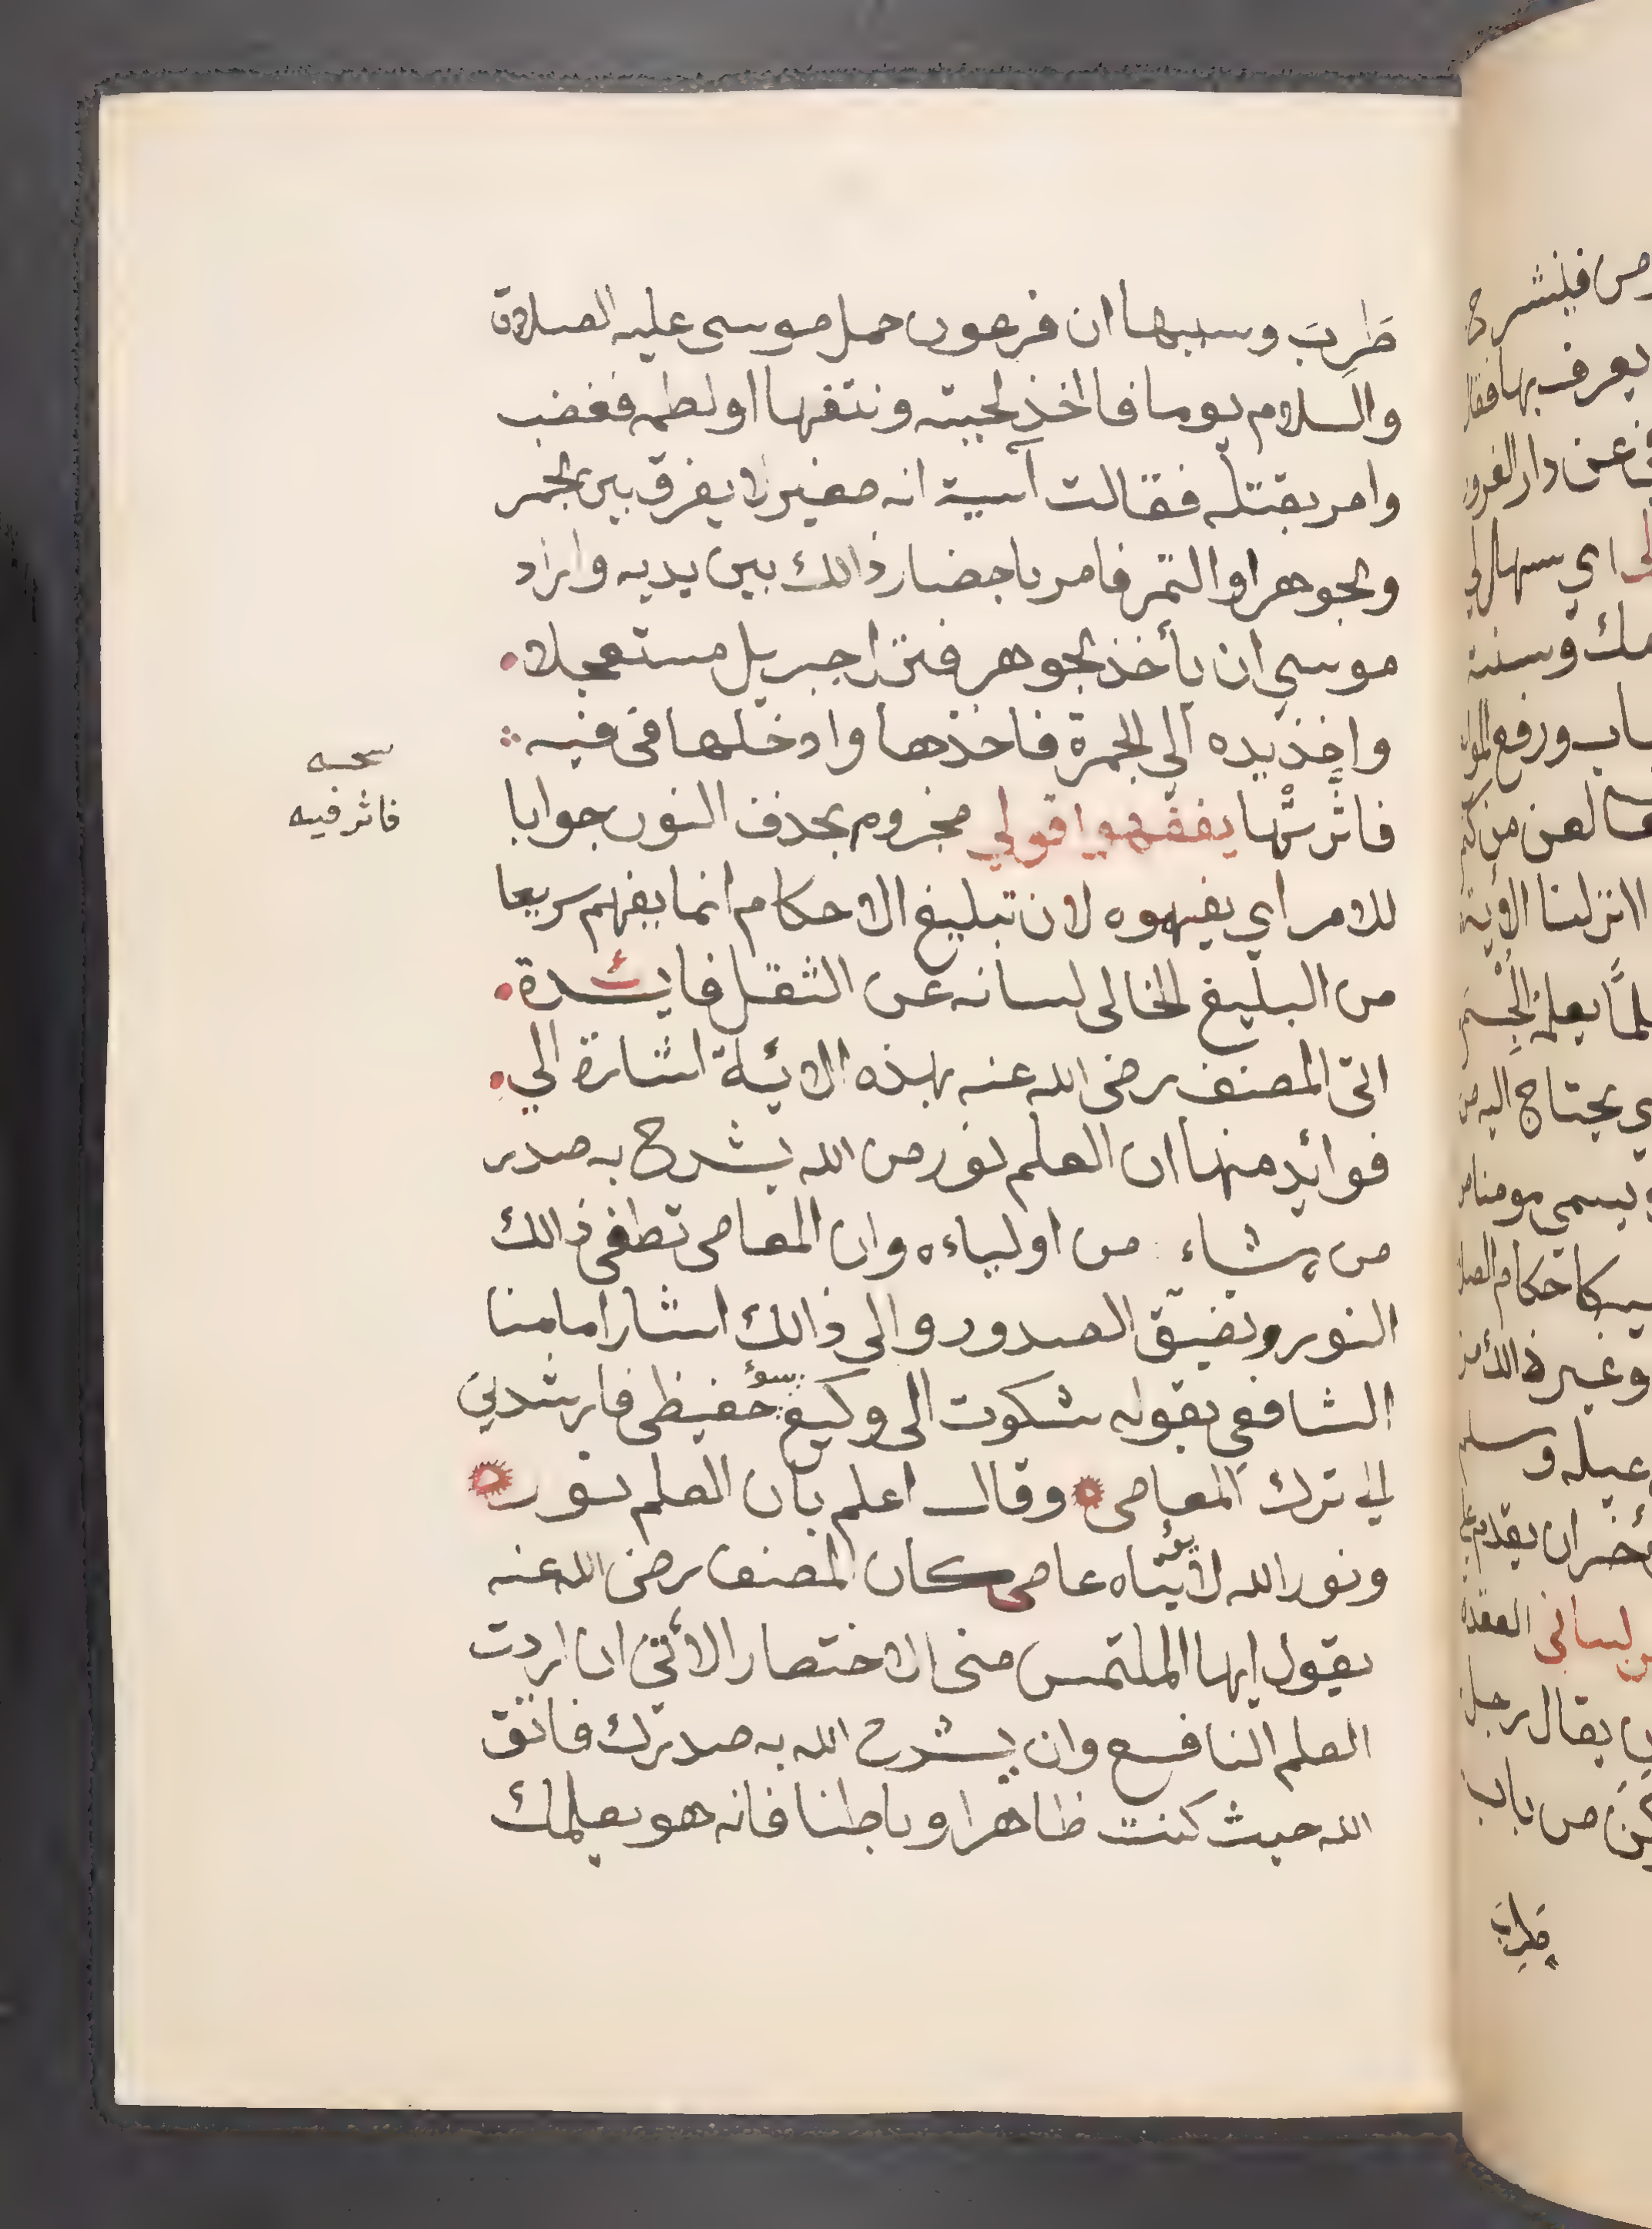 طَرِبَ وسببها ان فرعون حمل موسى عليه الصلاة
والسلام يوما فاخذ لحيته ونتفها اولطمه فغضب
وامر بقتله فقالت آسية انه صغير لا يفرق بين الجمر
والجوهر او التمر فامر باحضار ذالك بين يديه واراد
موسى ان يأخذ الجوهر فنزل جبريل مستعجلا
واخذ يده الى الجمرة فاخذها وادخلها في فيه
فاثرتها يفقهوا قولي مجزوم بحذف النون جوابا
للامر اي يفهموه لان تبليغ الاحكام انما يفهم سريعا
من البليغ الخالى لسانه عن الثقل فائدة
اتى المصنف رضى الله عنه بهذه الائية اشارة الي
فوائد منها ان العلم نور من الله يشرح به صدر
من يشاء من اولياءه وان المعاصى تطفى ذالك
النور وتضيق الصدور والى ذالك اشار امامنا
الشافعي بقوله شكوت الى وكيع سوٴ حفيظى فارشدني
الي ترك المعاصى وقال اعلم بان العلم نور
ونور الله لا يئتاه عاصى كان المصنف رضى الله عنه
يقول ايها الملتمس منى الاختصار الأتي ان اردت
العلم النافع وان يشرح الله به صدرك فاتق
الله حيث كنت ظاهرا وباطنا فانه هو يعلمك
نسخه
فاثر فيه
رمن فليشرح
يعرف بها فقال
عن دار الغرور
اي سهل لي
وسنته
باب ورفع
يعلمه
ي يحتاج اليه من
ويسمى مومنا
وغير ذالك
عيله وسلم
ان يقدم
من لسانى العقدة
يقال رجل
من باب
طرب